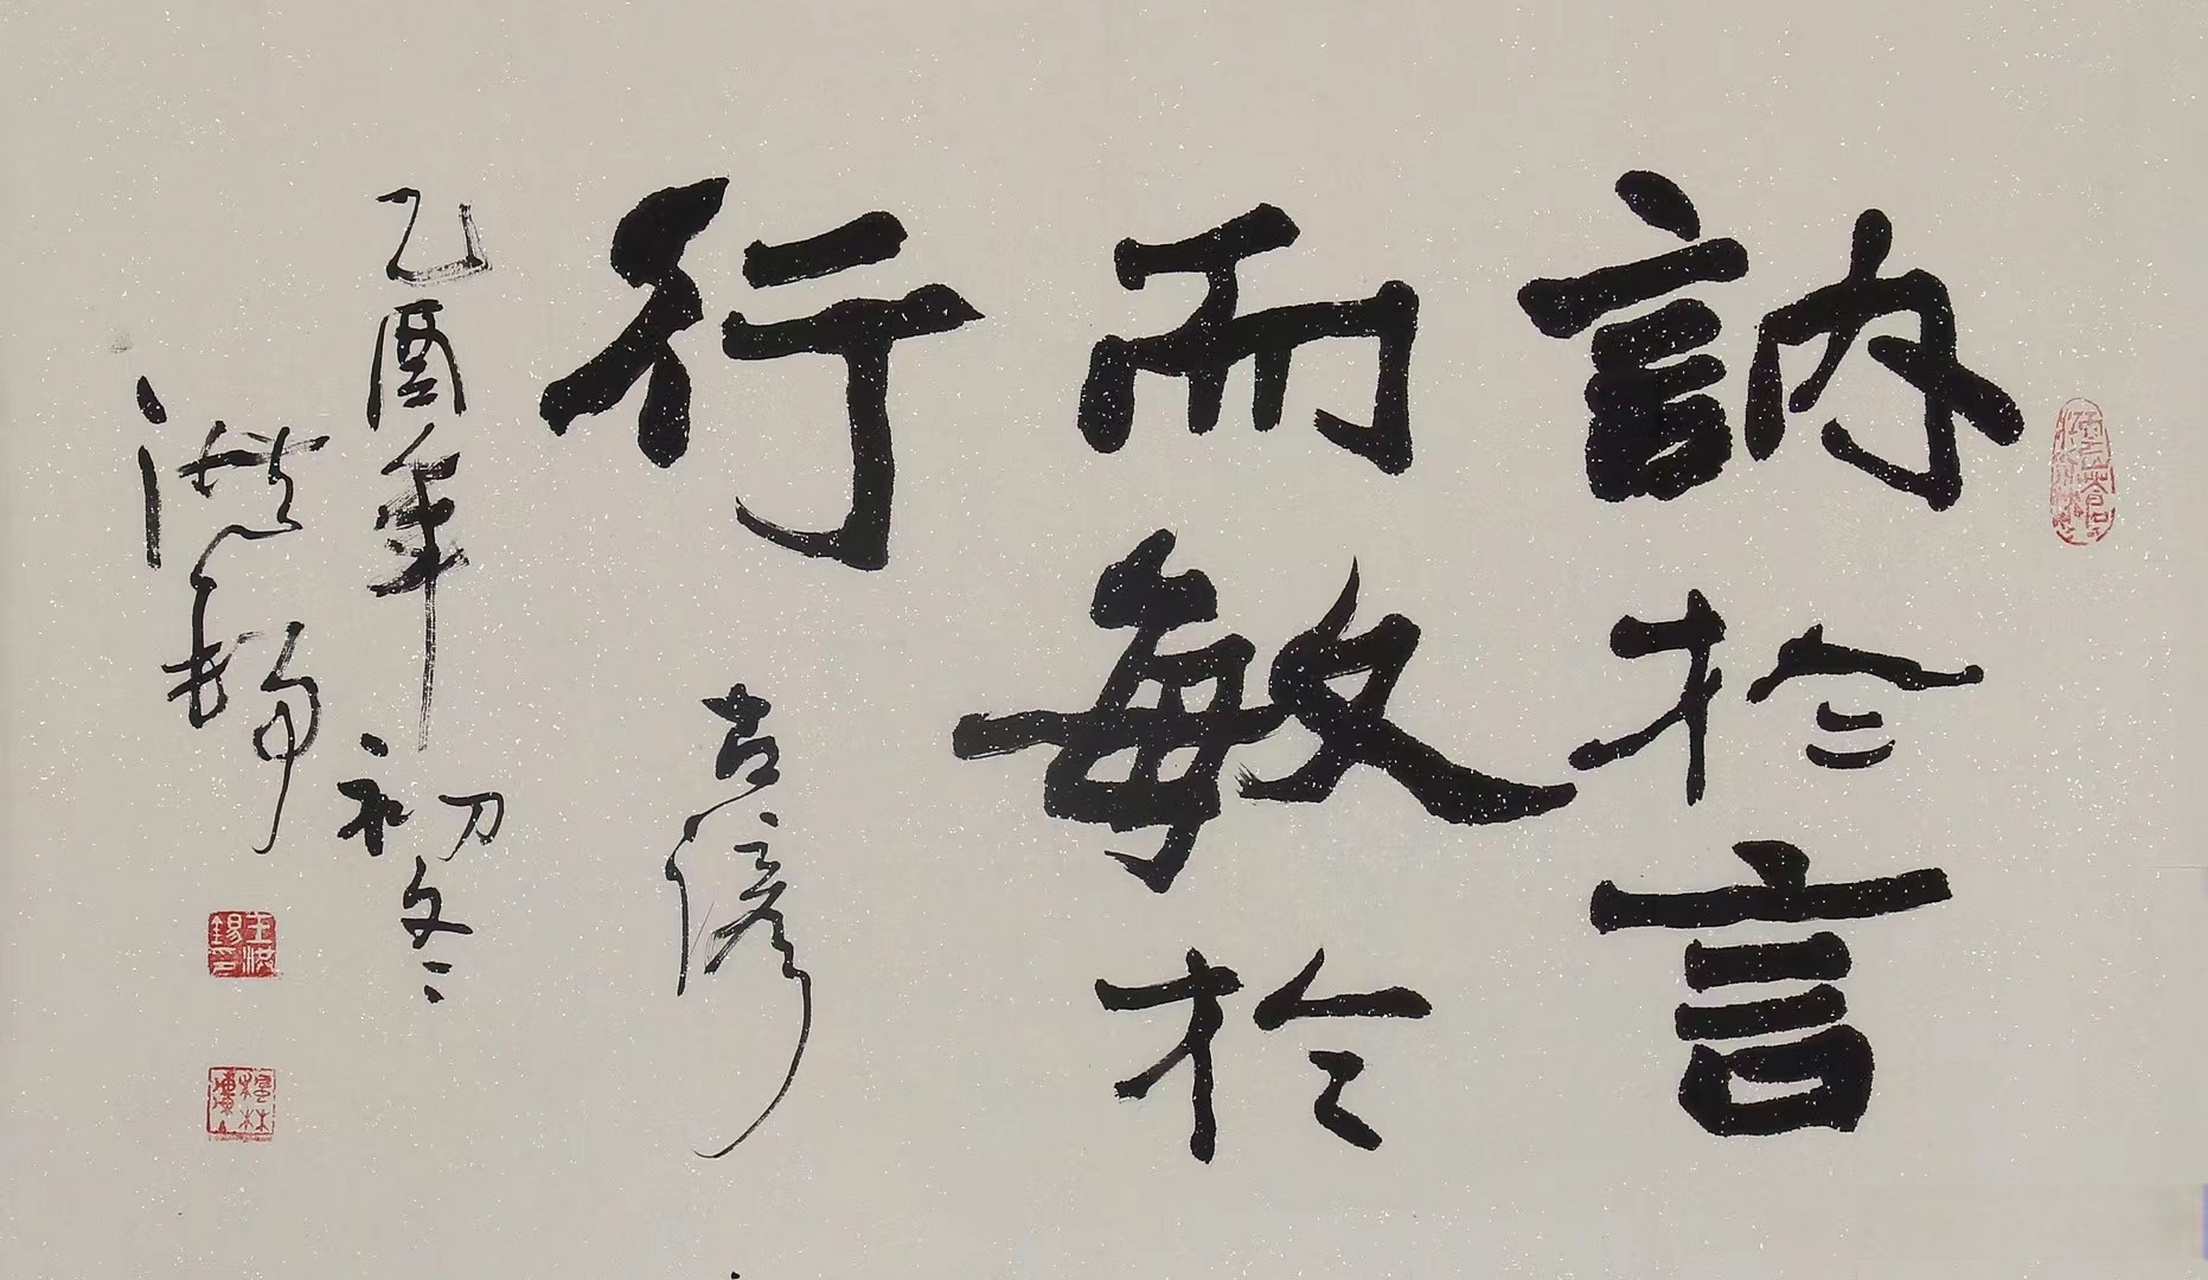 訥於言
而敏於
行 古諺
乙酉年初冬
洪錫
王洪錫印